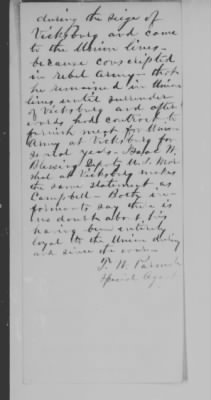 during the siege of
Vicksburg and come
to the Union lines
because conscripted
in rebel army - that
he remained in Union
lines until surrender
of Vicksburg and after
wards had contract to
furnish meat for Union
Army at Vicksburg for
several years. W.
Blessing Deputy U.S. Mar
shal at Vicksburg makes
the same statement as
Campbell - Both in
formants say there is
no doubt about his
having been entirely
loyal to the Union during
and since the war.
T. W.
Special Agent